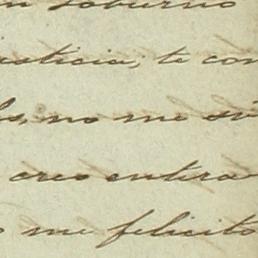 soburno
justicia, te con
no me si
creo entera
me felicito